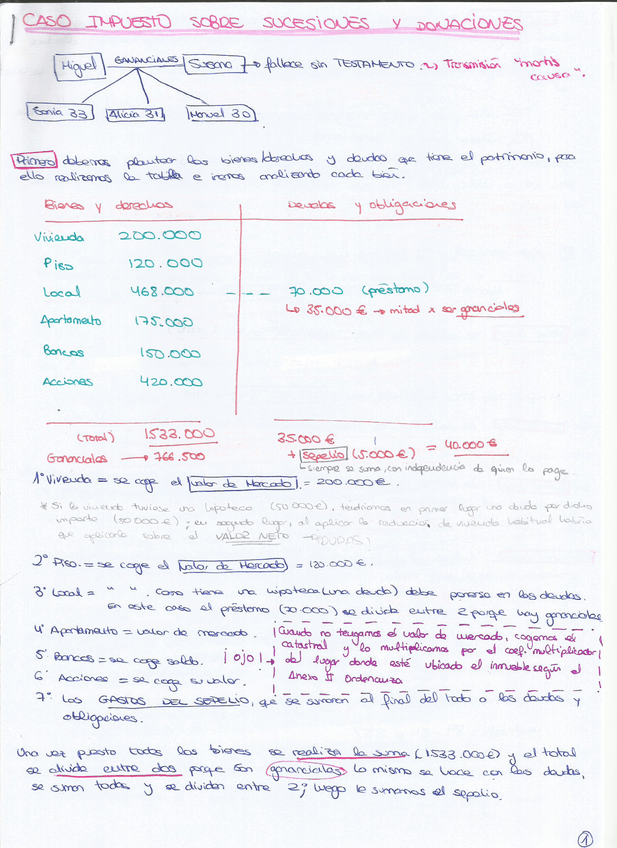 CASO IMPUESTO SOBRE SUCESIONES Y DONACIONES
Miguel GANANCIALES Susana → fallece sin TESTAMENTO. Transmisión "mortis causa".
Sonia 33 Alicia 31 Manuel 30
Primero debemos plantear los bienes/derechos y deudas que tiene el patrimonio, para
ello realizamos la tabla e iremos analizando cada bien.
Bienes y derechos Deudas y obligaciones
Vivienda 200.000
Piso 120.000
Local 468.000 - - - 70.000 (préstamo)
↳ 35.000 € → mitad x ser gananciales
Apartamento 175.000
Bancos 150.000
Acciones 420.000
(Total) 1533.000 35.000 €
Gananciales → 766.500 + sepelio (5.000 €) = 40.000 €
↳ siempre se suma, con independencia de quien lo page.
1º Vivienda = se coge el valor de Mercado = 200.000 €.
* Si la vivienda tuviese una hipoteca (50.000€), tendríamos en primer lugar una deuda por dicho
importe (50.000 €); en segundo lugar, al aplicar la reducción de vivienda habitual habría
que aplicarla sobre el VALOR NETO → ¡DUDAS!
2º Piso. = se coge el valor de Mercado = 120.000 €.
3º Local = " ". Como tiene una hipoteca (una deuda) debe ponerse en las deudas.
En este caso el préstamo (70.000) se divide entre 2 porque hay gananciales
4º Apartamento = valor de mercado.
5º Bancos = se coge saldo.
6º Acciones = se coge su valor.
¡ojo! → Cuando no tengamos el valor de mercado, cogemos el
catastral y lo multiplicamos por el coef. multiplicador
del lugar donde esté ubicado el inmueble según el
Anexo II Ordenanza
7º Los GASTOS DEL SEPELIO, que se sumaran al final del todo a las deudas y
obligaciones.
Una vez puesto todos los bienes se realiza la suma (1533.000€) y el total
se divide entre dos porque son gananciales. Lo mismo se hace con las deudas,
se suman todas y se dividen entre 2; luego le sumamos el sepelio.
1